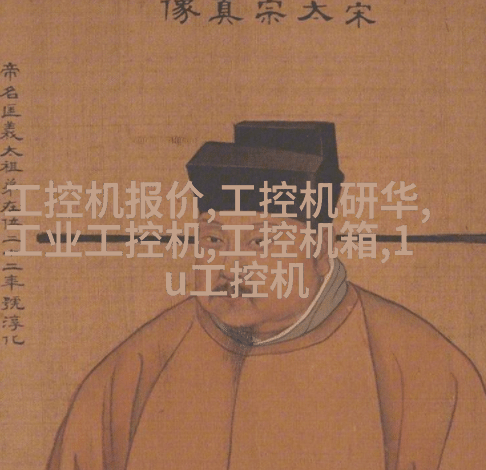 宋太宗真像
帝名匡義太祖弟在位二十二年號淳化
工控机报价,工控机研华,
工业工控机,工控机箱,1
u工控机